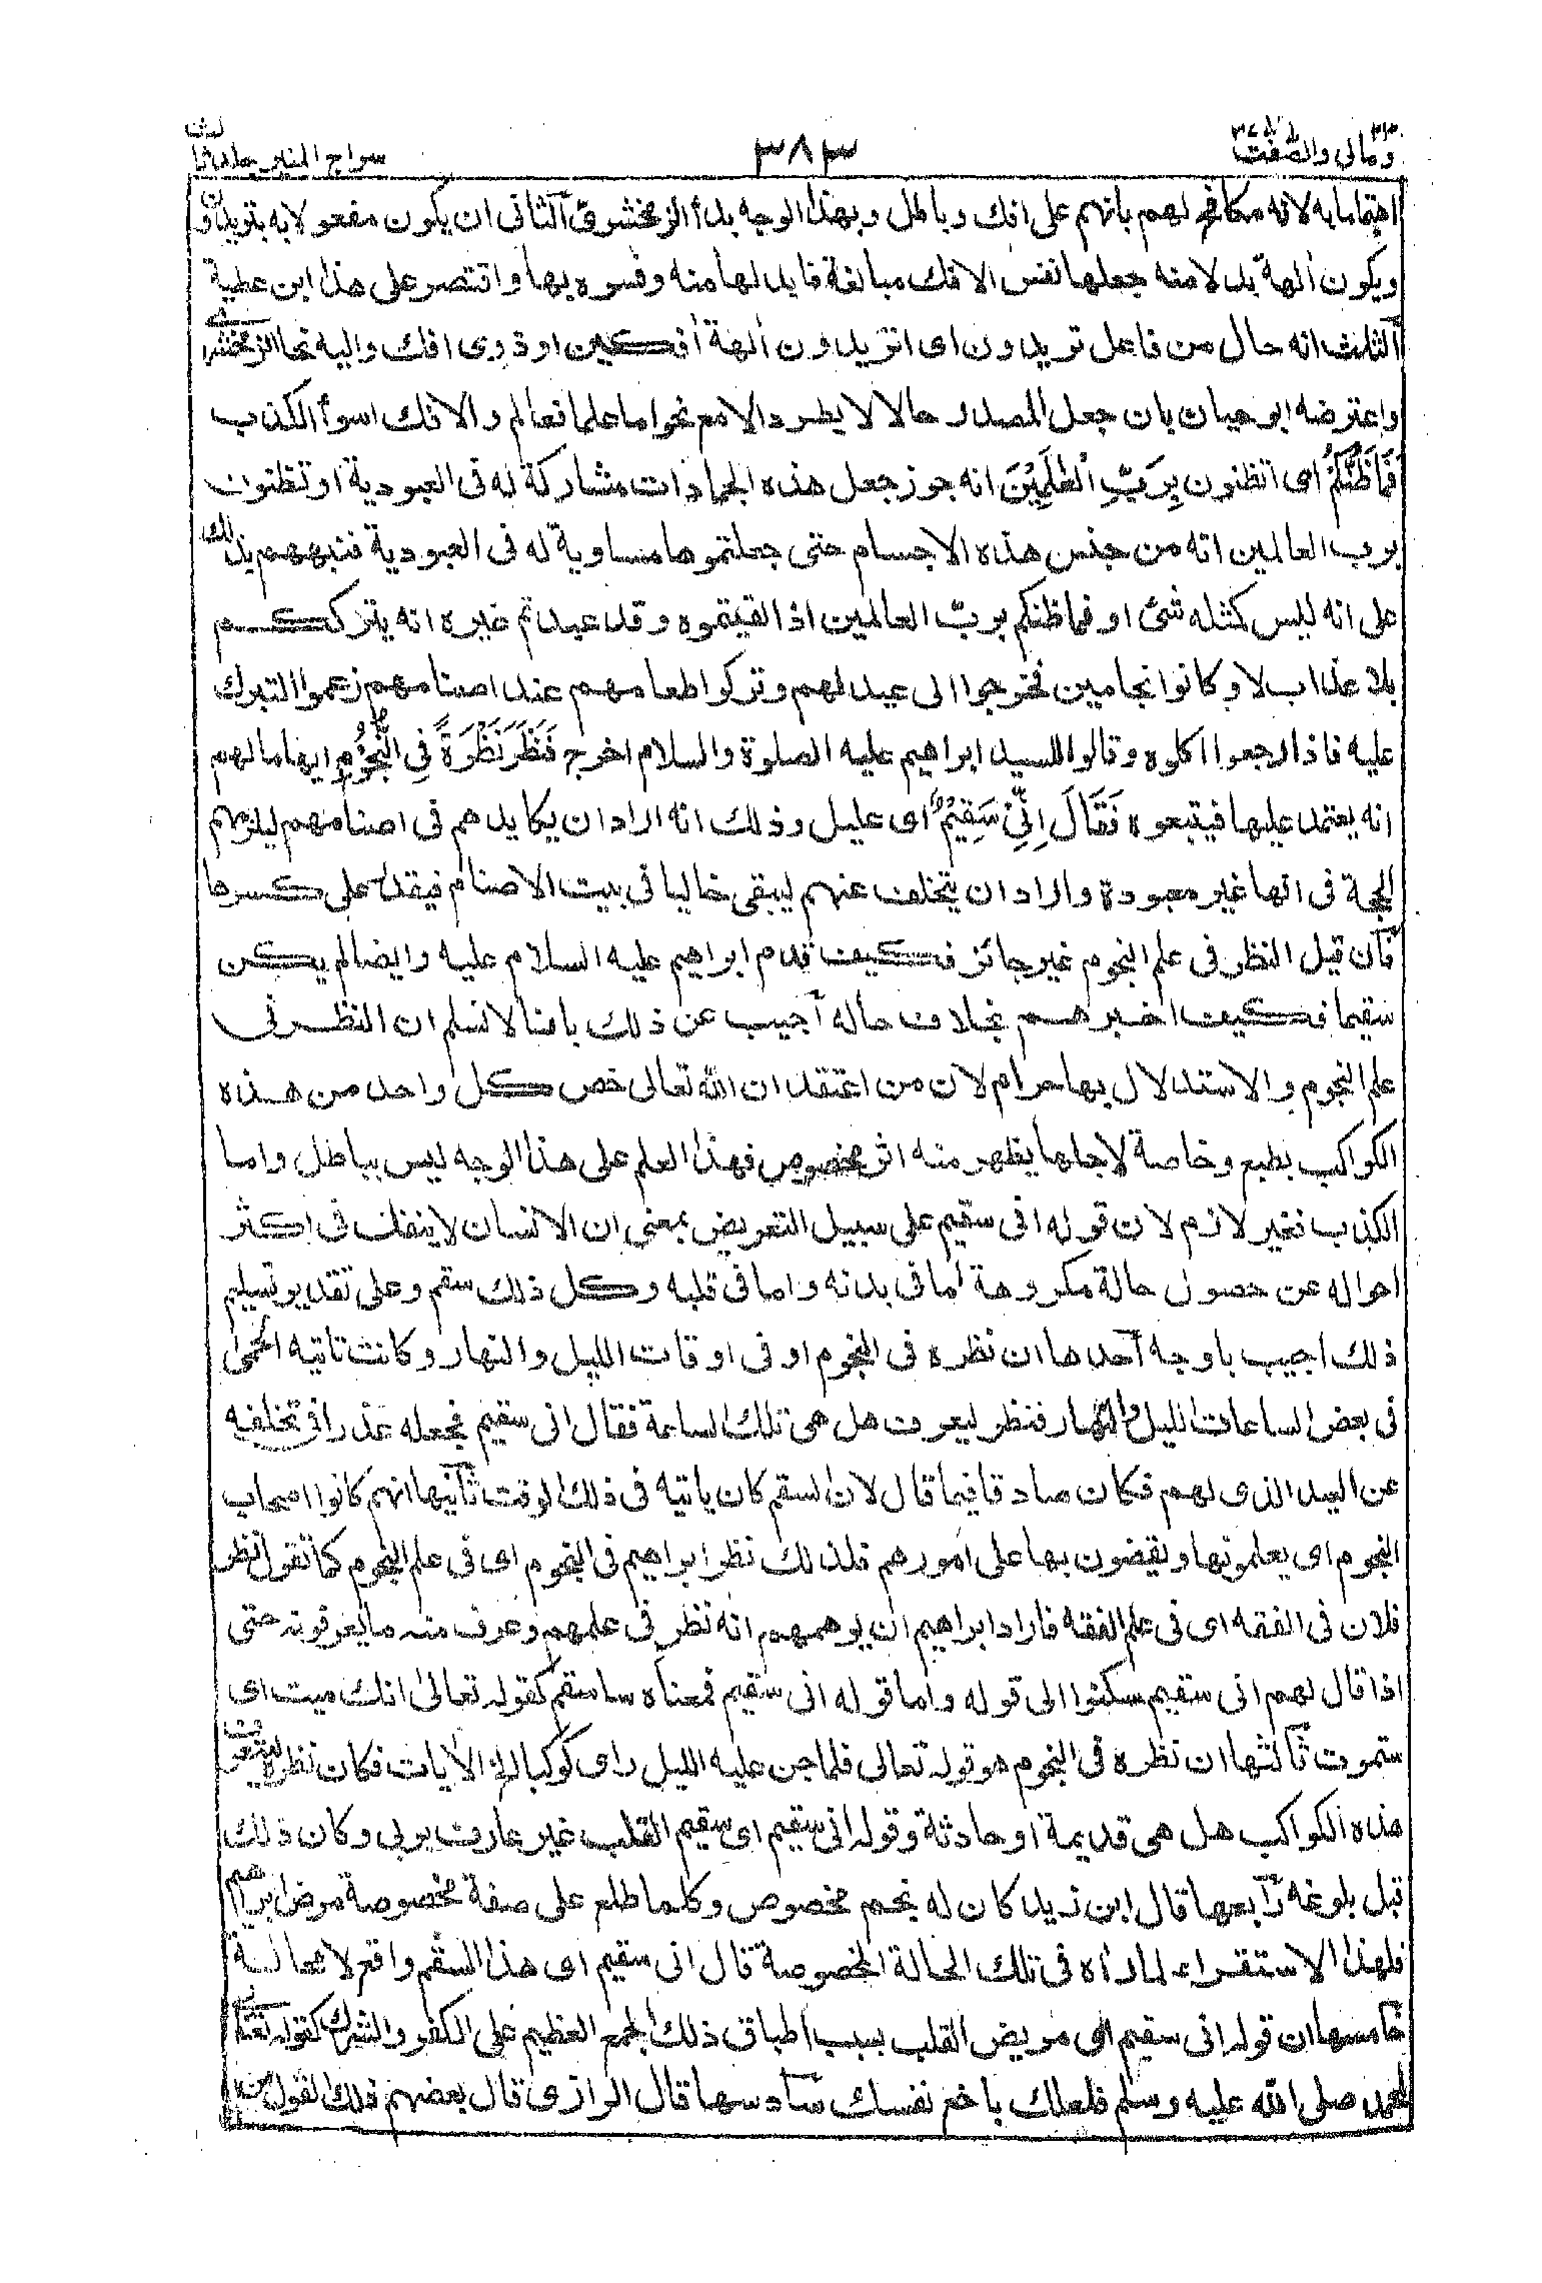 ٢٣ ومالى والصّٰفّٰت ٣٧
٣٨٣
سراج المنير جلد ثالث
اهتماما به لانه مكافح لهم بانهم على افك وباطل وبهذا الوجه بدأ الزمخشرىّ الثانى ان يكون مفعولا به بتريدون
ويكون اٰلهة بدلا منه جعلها نفس الافك مبالغة فابدلها منه وفسره بها واقتصر على هذا ابن عطية
الثالث انه حال من فاعل تريدون اى اتريدون اٰلهة اٰفكين او ذوى افك واليه نحا الزمخشرى
واعترضه ابو حيان بان جعل المصدر حالا لا يطرد الا مع نحو اما علما فعالم والافك اسوأ الكذب
فَمَا ظَنُّكُمْ اى اتظنون بِرَبِّ الْعٰلَمِيْنَ انه جوز جعل هذه الجمادات مشاركة له فى العبودية او تظنون
برب العالمين انه من جنس هذه الاجسام حتى جعلتموها مساوية له فى العبودية فنبههم بذلك
على انه ليس كمثله شئ او فما ظنكم بربّ العالمين اذا لقيتموه وقد عبدتم غيره انه يترككم
بلا عذاب لا وكانوا نجامين فخرجوا الى عيد لهم وتركوا طعامهم عند اصنامهم زعموا التبرك
عليه فاذا رجعوا اكلوه وقالوا للسيد ابراهيم عليه الصلوة والسلام اخرج فَنَظَرَ نَظْرَةً فِى النُّجُوْمِ ايهاما لهم
انه يعتمد عليها فيتبعوه فَقَالَ اِنِّىْ سَقِيْمٌ اى عليل وذلك انه اراد ان يكايدهم فى اصنامهم ليلزمهم
الحجة فى انها غير معبودة واراد ان يتخلف عنهم ليبقى خاليا فى بيت الاصنام فيقدر على كسرها
فان قيل النظر فى علم النجوم غير جائز فكيف قدم ابراهيم عليه السلام عليه وايضا لم يكن
سقيما فكيف اخبرهم بخلاف حاله أجيب عن ذلك باننا لا نسلم ان النظر فى
علم النجوم والاستدلال بها حرام لان من اعتقد ان الله تعالى خص كل واحد من هذه
الكواكب بطبع وخاصة لاجلها يظهر منه اثر مخصوص فهذا العلم على هذا الوجه ليس بباطل واما
الكذب فغير لازم لان قوله انى سقيم على سبيل التعريض بمعنى ان الانسان لا ينفك فى اكثر
احواله عن حصول حالة مكروهة اما فى بدنه واما فى قلبه وكل ذلك سقم وعلى تقدير تسليم
ذلك اجيب باوجه أحدها ان نظره فى النجوم او فى اوقات الليل والنهار وكانت تاتيه الحمى
فى بعض الساعات الليل والنهار فنظر ليعرف هل هى تلك الساعة فقال انى سقيم فجعله عذرا فى تخلفه
عن العيد الذى لهم فكان صادقا فيما قال لان السقم كان ياتيه فى ذلك الوقت ثانيها انهم كانوا اصحاب
النجوم اى يعلمونها ويقضون بها على امورهم فلذلك نظر ابراهيم فى النجوم اى فى علم النجوم كما تقول نظر
فلان فى الفقه اى فى علم الفقه فاراد ابراهيم ان يوهمهم انه نظر فى علمهم وعرف منه ما يعرفونه حتى
اذا قال لهم انى سقيم سكنوا الى قوله واما قوله انى سقيم فمعناه ساسقم كقوله تعالى انك ميت اى
ستموت ثالثها ان نظره فى النجوم هو قوله تعالى فلما جن عليه الليل راى كوكبا الخ الأيات فكان نظره ليتعرف
هذه الكواكب هل هى قديمة او حادثة وقوله انى سقيم اى سقيم القلب غير عارف بربى وكان ذلك
قبل بلوغه رابعها قال ابن زيد كان له نجم مخصوص وكلما طلع على صفة مخصوصة مرض ابراهيم
فلهذا الاستقراء لما رأه فى تلك الحالة المخصوصة قال انى سقيم اى هذا السقم واقع لا محالة
خامسها ان قوله انى سقيم اى مريض القلب بسبب اطباق ذلك الجمع العظيم على الكفر والشرك كقوله تعالى
لمحمد صلى الله عليه وسلم فلعلك باخع نفسك سادسها قال الرازى قال بعضهم ذلك القول من